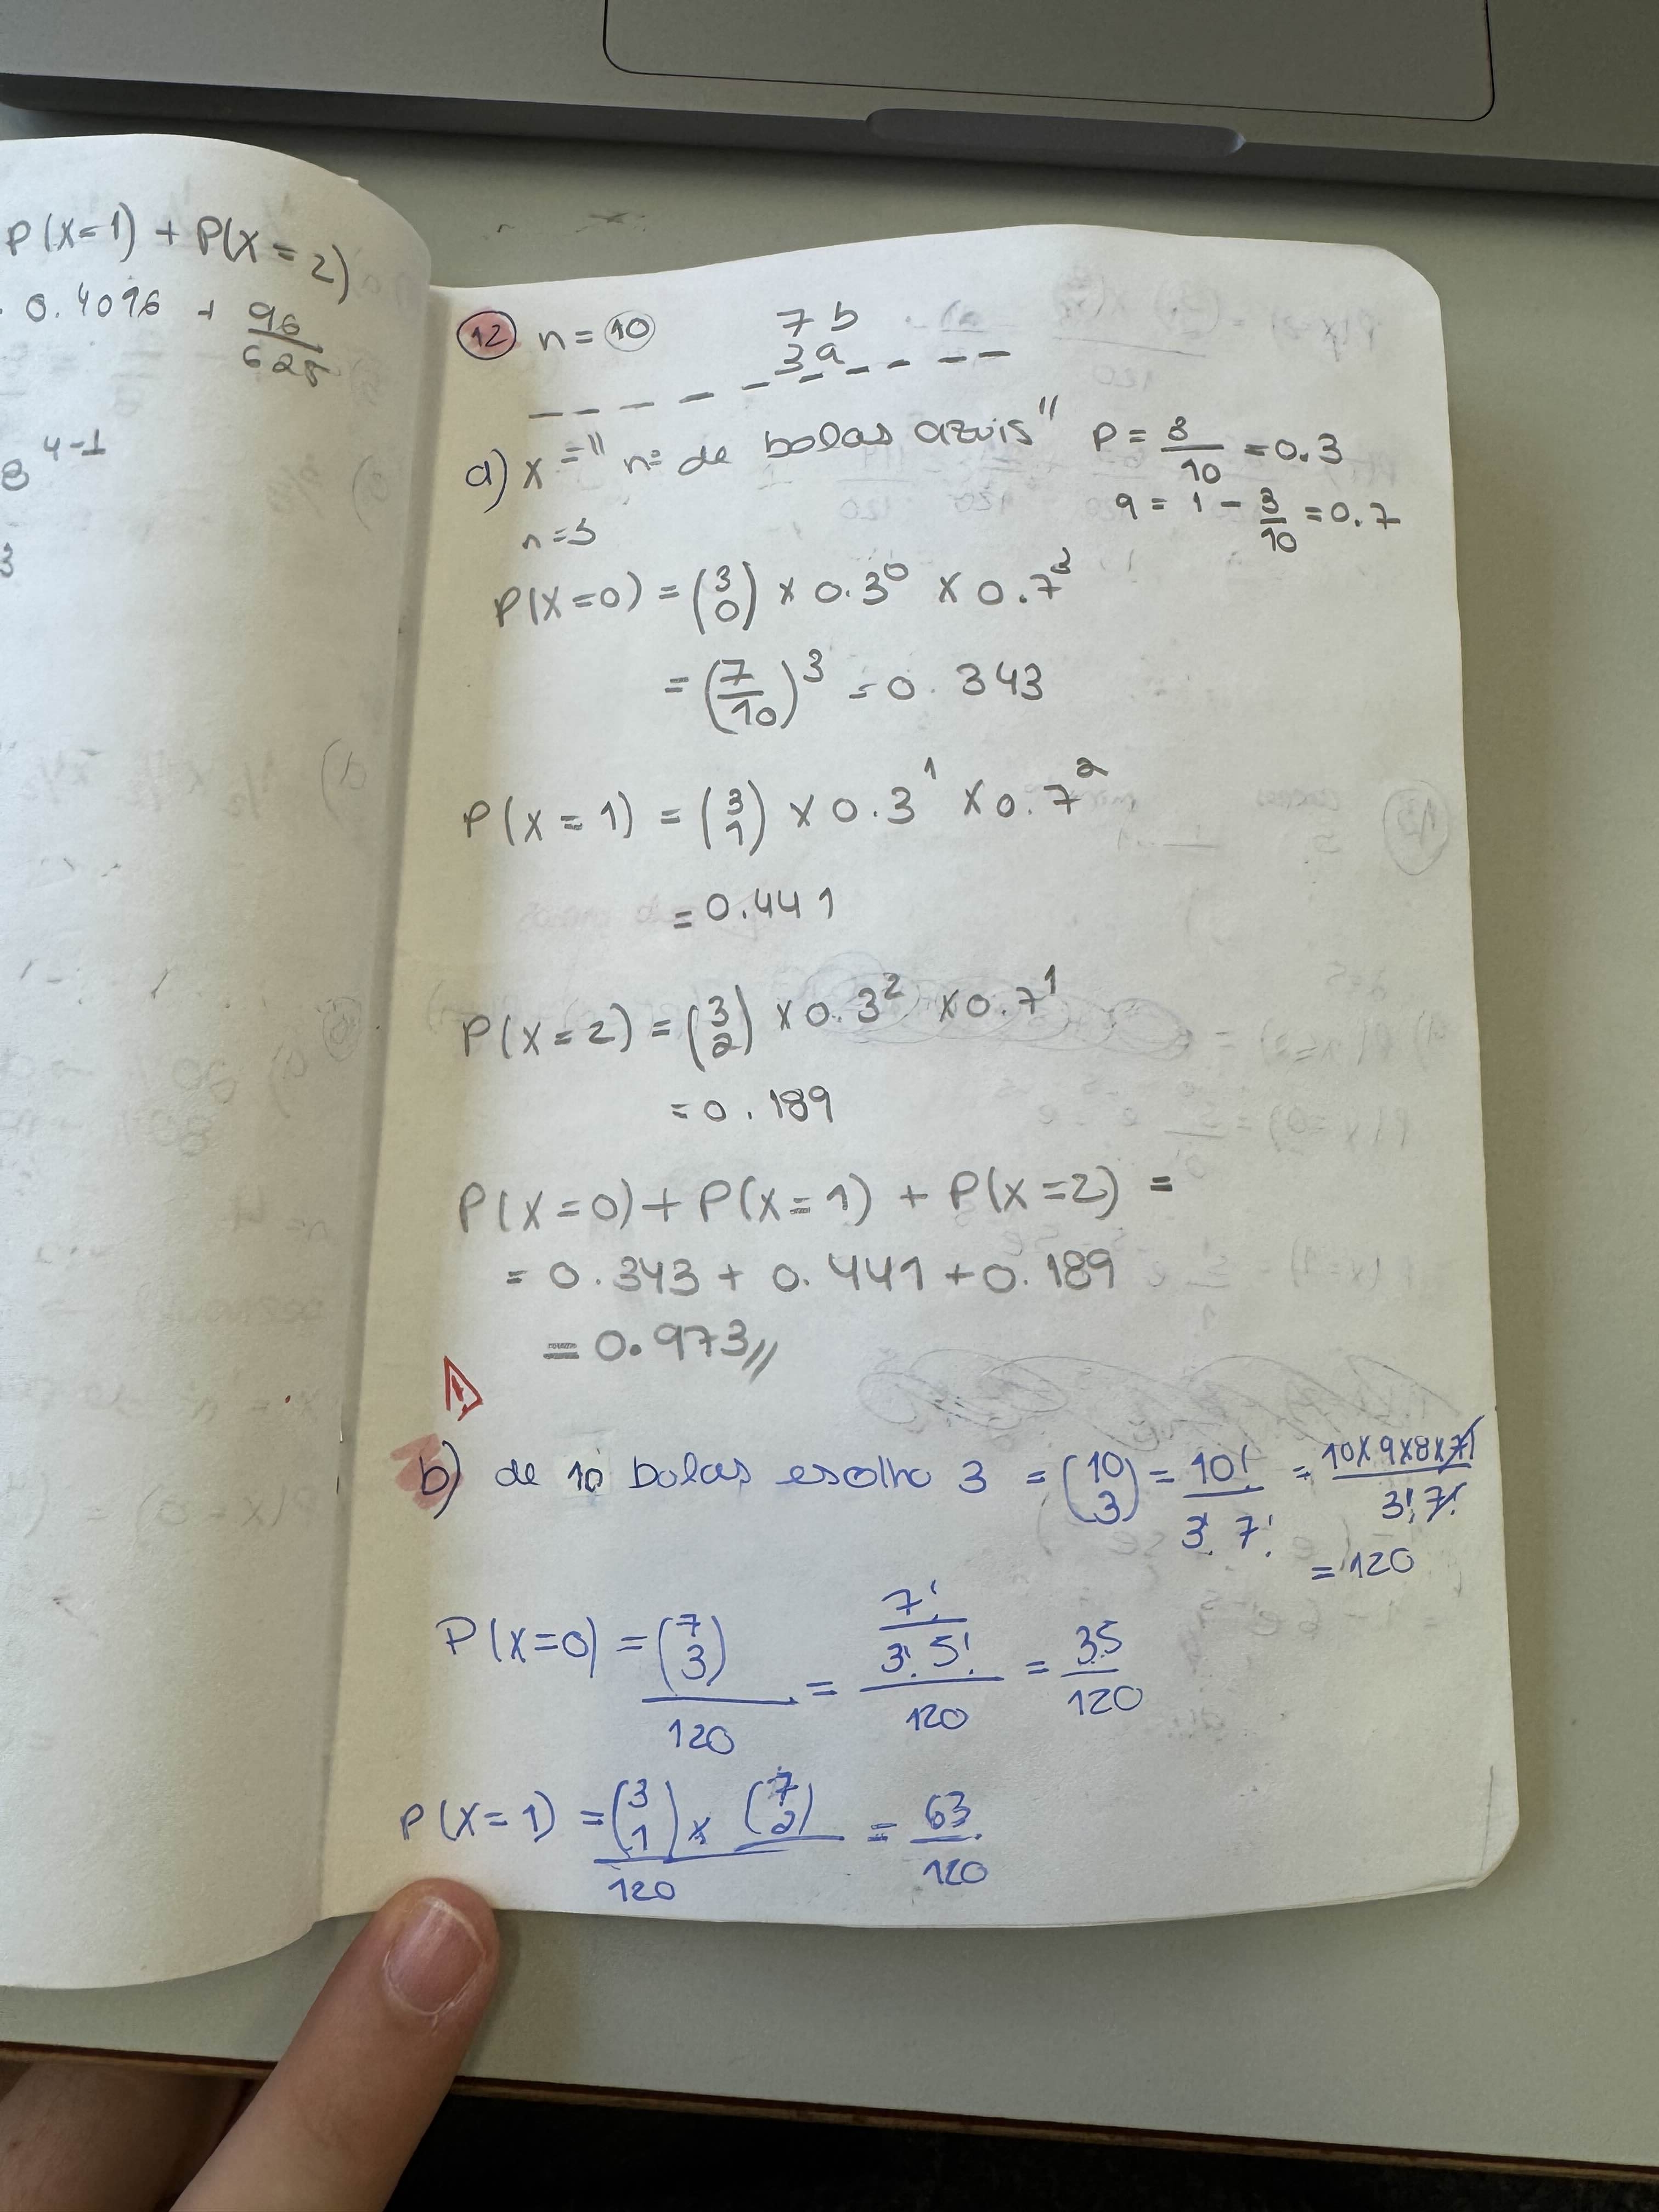 P(X=1) + P(X=2)
0.4096 + 96/625
4-1
3
12 n = 10 7 b
3a
a) X = "nº de bolas azuis" p = 3/10 = 0.3
q = 1 - 3/10 = 0.7
n=3
P(X=0) = (3 0) × 0.3^0 × 0.7^3
= (7/10)^3 = 0.343
P(X=1) = (3 1) × 0.3^1 × 0.7^2
= 0.441
P(X=2) = (3 2) × 0.3^2 × 0.7^1
= 0.189
P(X=0) + P(X=1) + P(X=2) =
= 0.343 + 0.441 + 0.189
= 0.973//
b) de 10 bolas escolho 3 = (10 3) = 10!/3! 7! = 10×9×8×7!/3! 7!
= 120
P(X=0) = (7 3)/120 = (7!/3! 5!)/120 = 35/120
P(X=1) = (3 1) × (7 2)/120 = 63/120